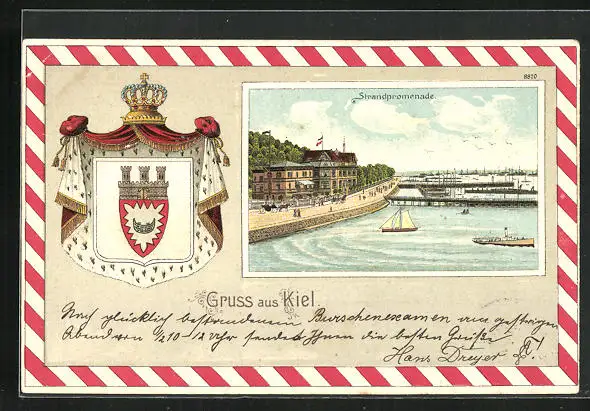 8820
Strandpromenade.
Gruss aus Kiel.
Nach glücklich bestandenem Burschenexamen am gestrigen
Abend von 1/2 10–12 Uhr sendet Ihnen die besten Grüße
Hans Dreyer